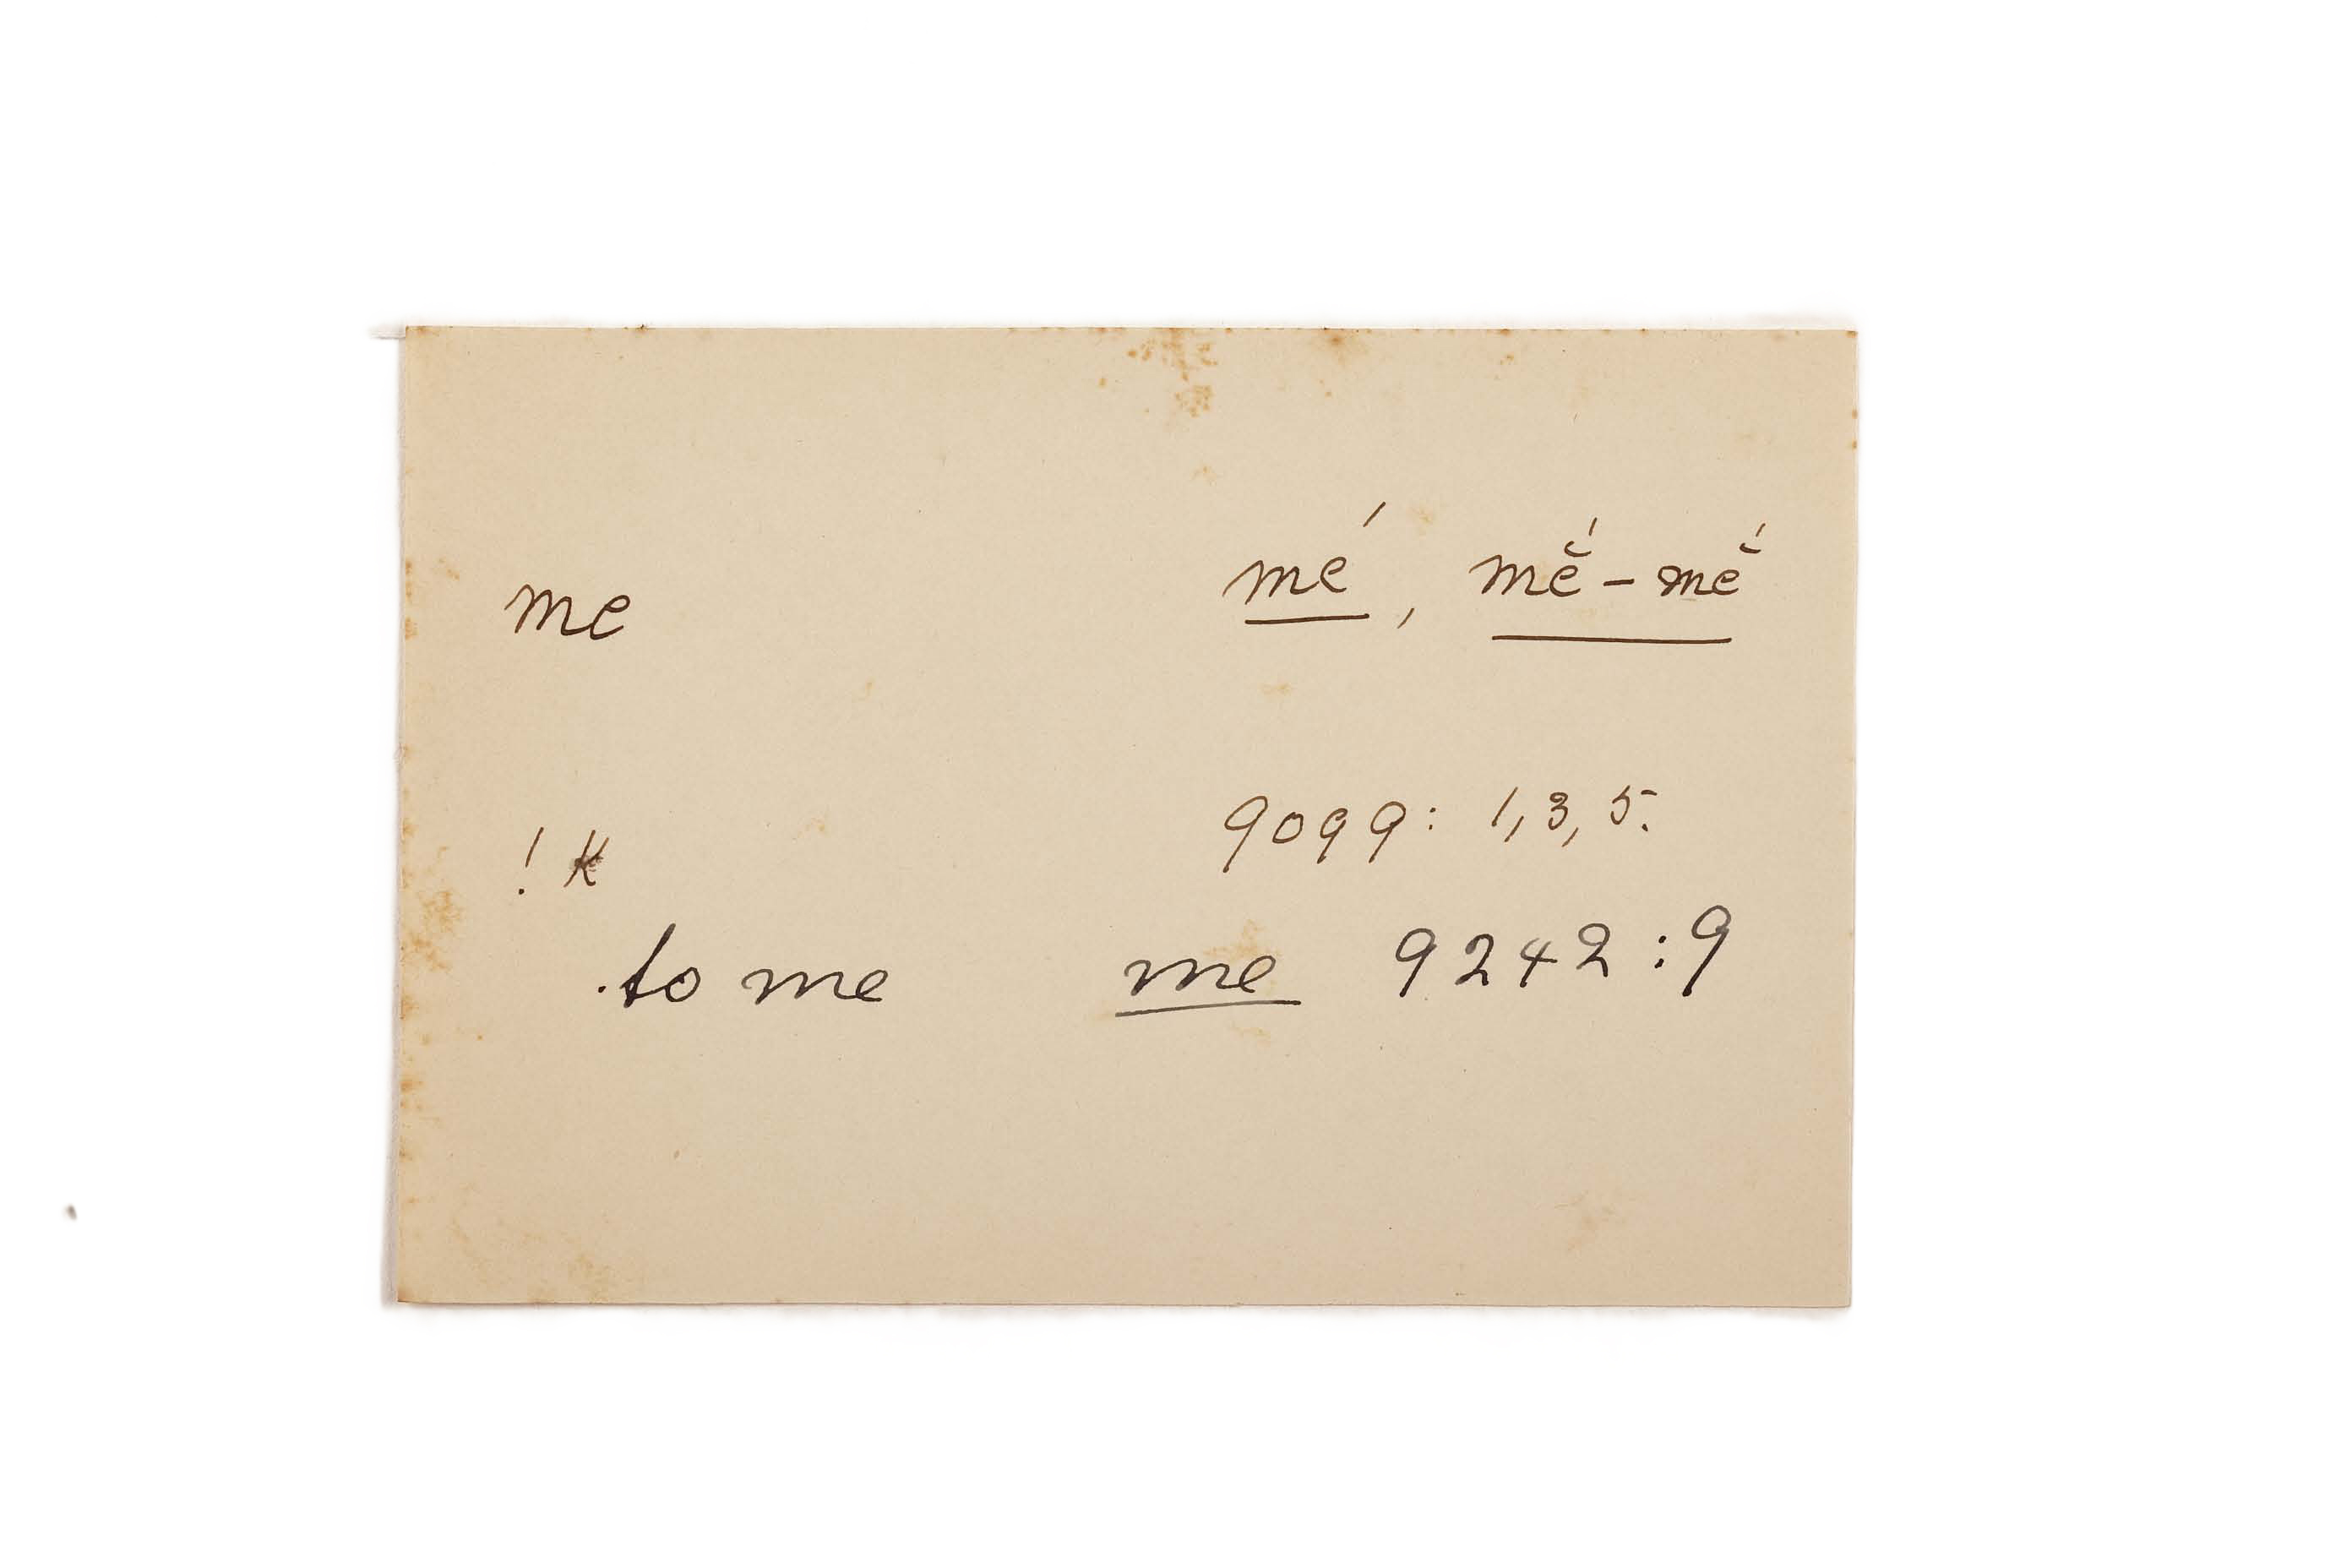 me mé, mĕ́-mĕ́
! K 9099: 1, 3, 5.
to me me 9242:9